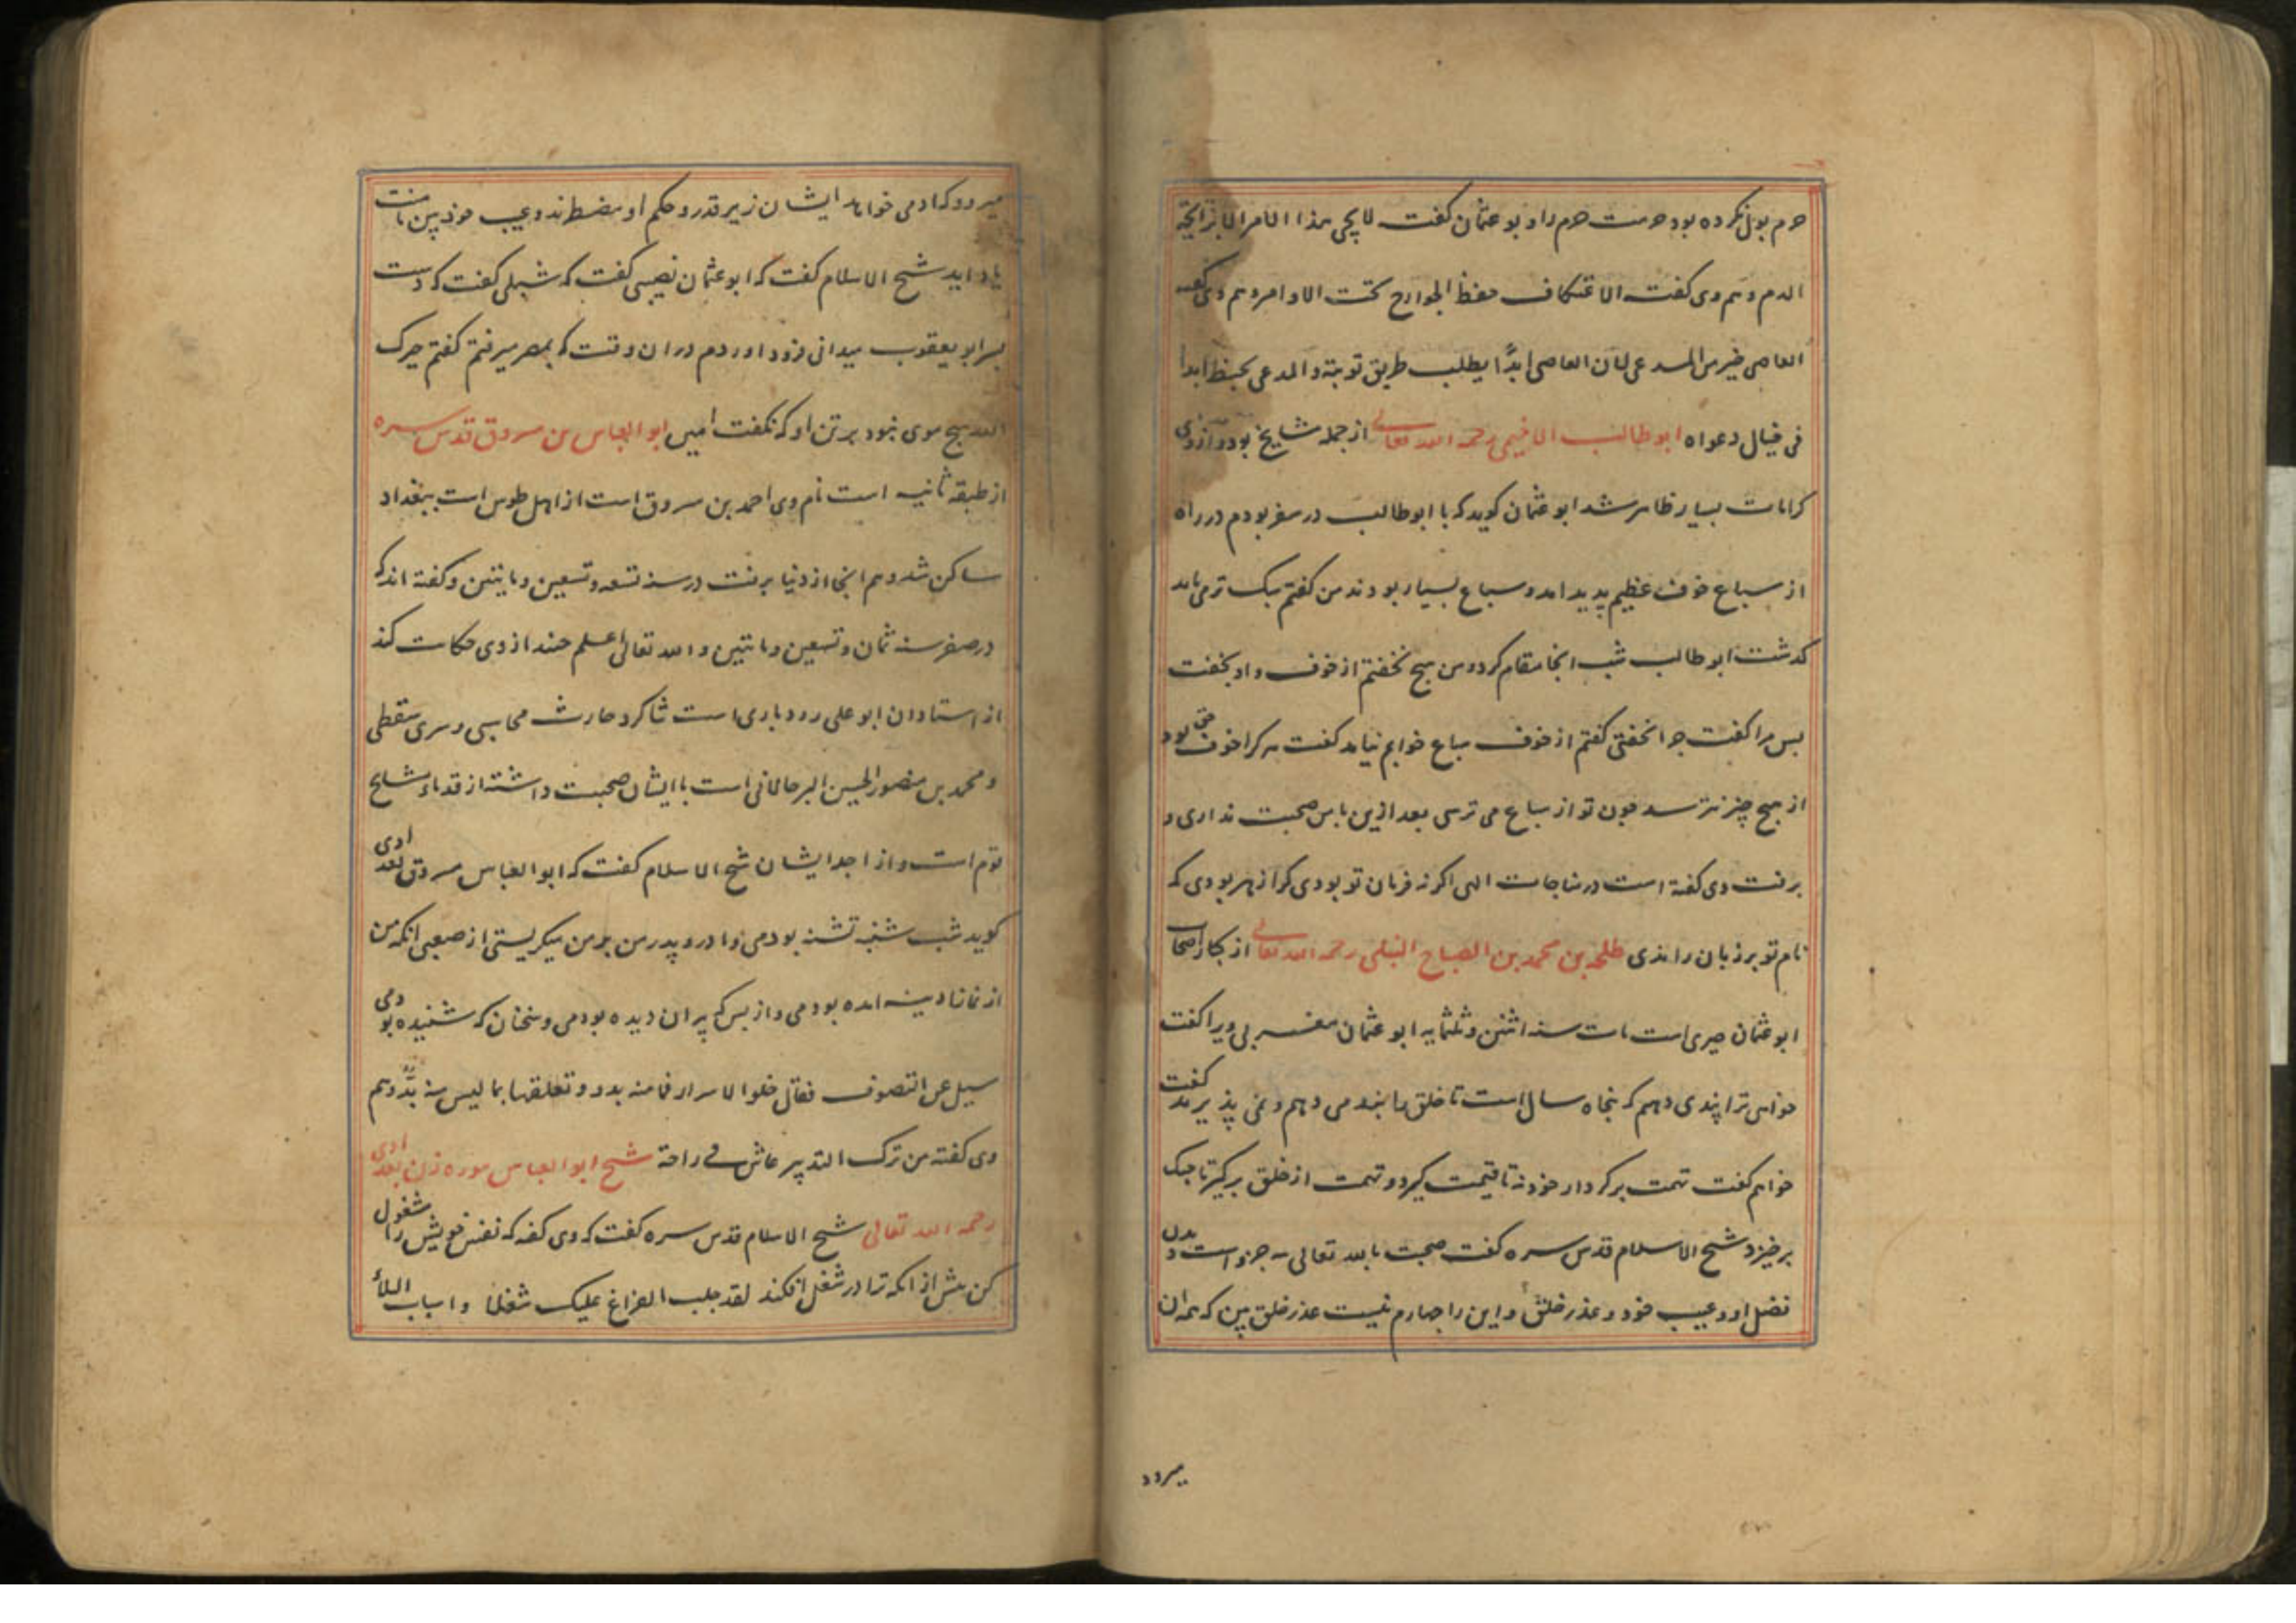 حرم بول نکرده بود حرمت حرم را و بو عثمان گفت لا یجی هذا الامر الا برایحة
الدم و هم وی گفت الاعتکاف حفظ الجوارح تحت الاوامر و هم وی گفته
العاصی خیر من المدعی لان العاصی ابدًا یطلب طریق توبته و المدعی یخبط ابدا
فی خیال دعواه ابو طالب الاخمیمی رحمه الله تعالی از جمله مشایخ بود و از وی
کرامات بسیار ظاهر شد ابو عثمان گوید که با ابو طالب در سفر بودم در راه
از سباع خوف عظیم پدید امد و سباع بسیار بودند من گفتم سبک تر می باید
گذشت ابو طالب شب انجا مقام کرد و من هیچ نخفتم از خوف و او بخفت
بس مرا گفت چرا نخفتی گفتم از خوف سباع خوابم نیامد گفت هر کرا خوف حق بود
از هیچ چیز نترسد چون تو از سباع می ترسی بعد ازین با من صحبت نداری و
برفت وی گفته است در مناجات الهی اگر نه فرمان تو بودی کرا زهره بودی که
نام تو بر زبان راندی طلحه بن محمد بن الصباح النیلی رحمه الله تعالی از کبار اصحاب
ابو عثمان حیری است مات سنه اثنین و ثلثمایه ابو عثمان مغربی ویرا گفت
خواهی ترا پندی دهم که پنجاه سال است تا خلق را پند می دهم و نمی پذیرند گفت
خواهم گفت تهمت بر کردار خود نه تا قیمت گیرد و تهمت از خلق برگیر تا جنگ
برخیزد شیخ الاسلام قدس سره گفت صحبت با الله تعالی سه جزو است دیدن
فضل او و عیب خود و عذر خلق و این را چهارم نیست عذر خلق بین که همه ان
میرود
میرود که او می خواهد ایشان زیر قدر و حکم او مضطرند و عیب خود بین تا منت
یاد اید شیخ الاسلام گفت که ابو عثمان نصیبی گفت که شبلی گفت که دست
بسر ابو یعقوب میدانی فرود اوردم دران وقت که بمصر میرفتم گفتم جبرک
الله هیچ موی نبود بر تن او که نگفت امین ابو العباس بن مسروق قدس سره
از طبقه ثانیه است نام وی احمد بن مسروق است از اهل طوس است ببغداد
ساکن شد و هم انجا از دنیا برفت در سنه تسعه و تسعین و مایتین و گفته اند که
در صفر سنه ثمان و تسعین و مایتین و الله تعالی اعلم جنید از وی حکایت کند
از استادان ابو علی رودباری است شاگرد حارث محاسبی و سری سقطی
و محمد بن منصور الحسین البرجلانی است با ایشان صحبت داشته از قدماء مشایخ
قوم است و از اجله ایشان شیخ الاسلام گفت که ابو العباس مسروق بغدادی
گوید شب شنبه تشنه بودمی و مادر و پدر من بر من میگریستی از صعبی انکه من
از نماز ادینه امده بودمی و از بس که پیران دیده بودمی و سخنان که شنیده بودمی
سیل عن التصوف فقال خلو الاسرار فما منه بد و تعلقها بما لیس منه بدّ و هم
وی گفته من ترک التدبیر عاش فی راحة شیخ ابو العباس موره زن بغدادی
رحمه الله تعالی شیخ الاسلام قدس سره گفت که وی گفته که نفس خویش را مشغول
کن پیش از انکه ترا در شغل افکند لقد جلب الفراغ علیک شغلا و اسباب البلاء